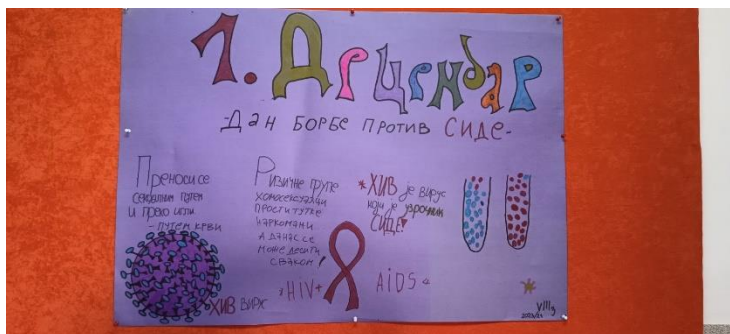 1. Децембар
-Дан борбе против СИДЕ-
Преноси се
сексуалним путем
и преко игли
- путем крви
ХИВ вирус
Ризичне групе
хомосексуалци
проститутке
наркомани
а данас се
може десити
сваком!
*HIV+
*ХИВ је вирус
који је узрочник
СИДЕ!
AiDS
VIII3